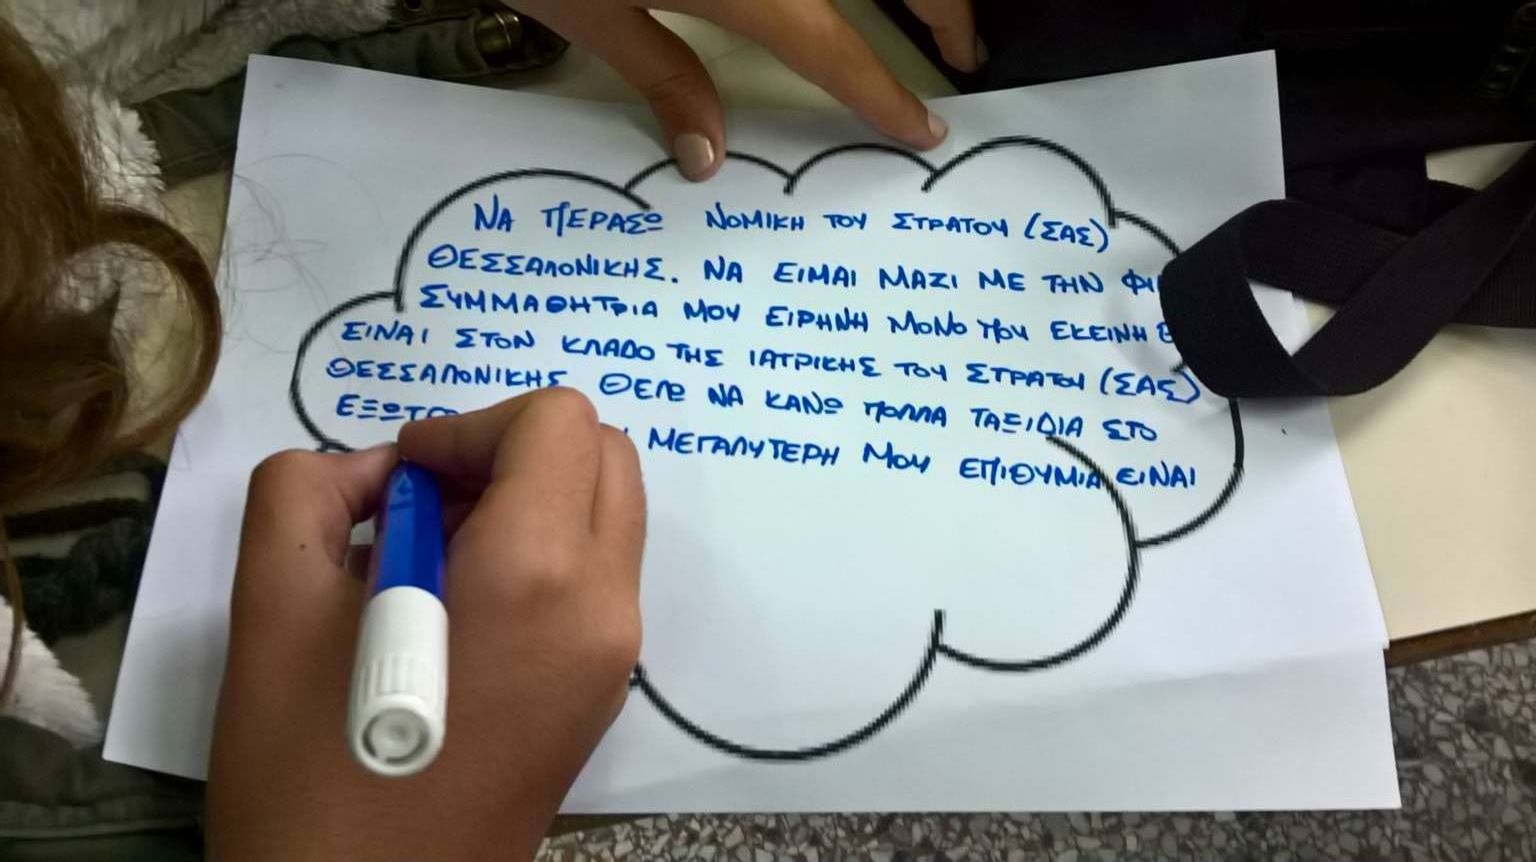 ΝΑ ΠΕΡΑΣΩ ΝΟΜΙΚΗ ΤΟΥ ΣΤΡΑΤΟΥ (ΣΑΣ)
ΘΕΣΣΑΛΟΝΙΚΗΣ. ΝΑ ΕΙΜΑΙ ΜΑΖΙ ΜΕ ΤΗΝ
ΣΥΜΜΑΘΗΤΡΙΑ ΜΟΥ ΕΙΡΗΝΗ ΜΟΝΟ ΠΟΥ ΕΚΕΙΝΗ
ΕΙΝΑΙ ΣΤΟΝ ΚΛΑΔΟ ΤΗΣ ΙΑΤΡΙΚΗΣ ΤΟΥ ΣΤΡΑΤΟΥ (ΣΑΣ)
ΘΕΣΣΑΛΟΝΙΚΗΣ ΘΕΛΩ ΝΑ ΚΑΝΩ ΠΟΛΛΑ ΤΑΞΙΔΙΑ ΣΤΟ
ΜΕΓΑΛΥΤΕΡΗ ΜΟΥ ΕΠΙΘΥΜΙΑ ΕΙΝΑΙ